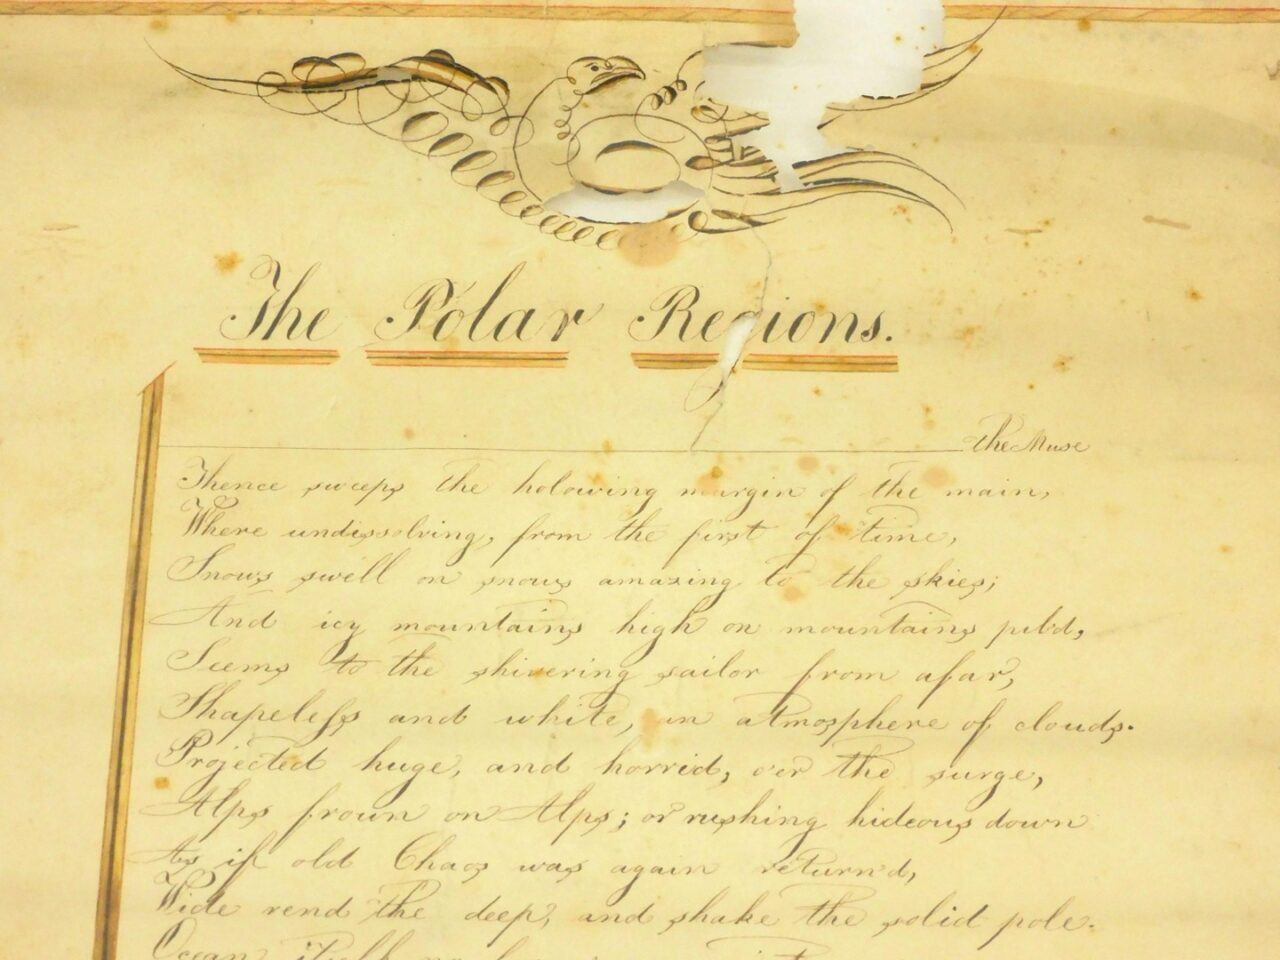 The Polar Regions.
the Muse
Thence sweeps the holowing margin of the main,
Where undissolving, from the first of time,
Snows swell on snows amazing to the skies;
And icy mountains high on mountains pil'd,
Seems to the shivering sailor from afar,
Shapeless and white, an atmosphere of clouds.
Projected huge, and horrid, o'er the surge,
Alps frown on Alps; or rushing hideous down
As if old Chaos was again return'd,
Wide rend the deep, and shake the solid pole.
Ocean itself no